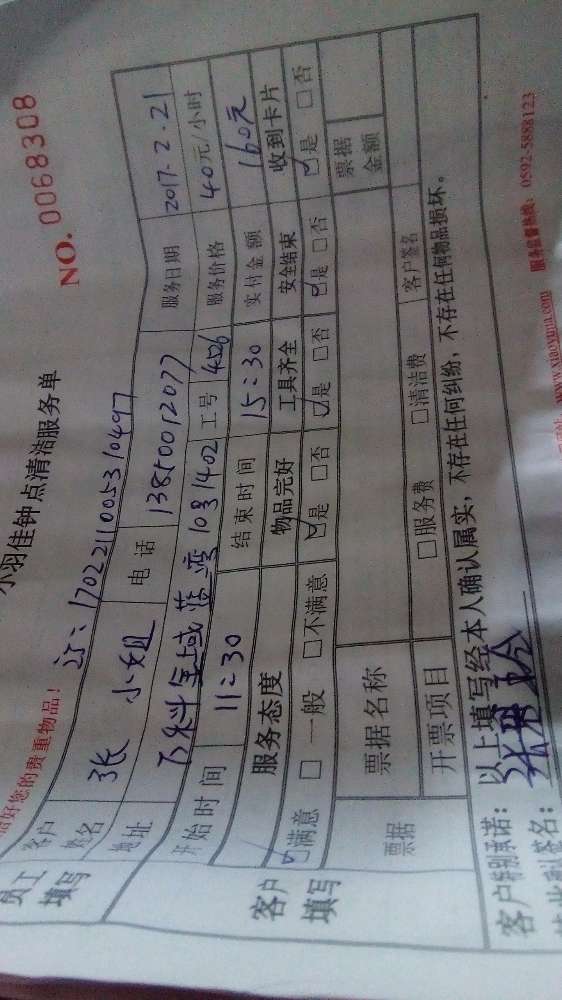 小羽佳钟点清洁服务单
NO. 0068308
好您的贵重物品！
1702211005310497
员工填写
客户姓名 张小姐 电话 服务日期 2017-2-21
地址 万科金域蓝湾 1031402 工号 4526 服务价格 40元/小时
开始时间 11:30 结束时间 15:30 实付金额 160元
客户填写
服务态度 物品完好 工具齐全 安全结束 收到卡片
☑满意 □一般 □不满意 ☑是 □否 ☑是 □否 ☑是 □否 ☑是 □否
票据 票据名称 票据金额
开票项目 □服务费 □清洁费 客户签名
客户特别承诺：以上填写经本人确认属实，不存在任何纠纷，不存在任何物品损坏。
签名：
www.xiaoyujia.com 服务监督热线：0592-5888123